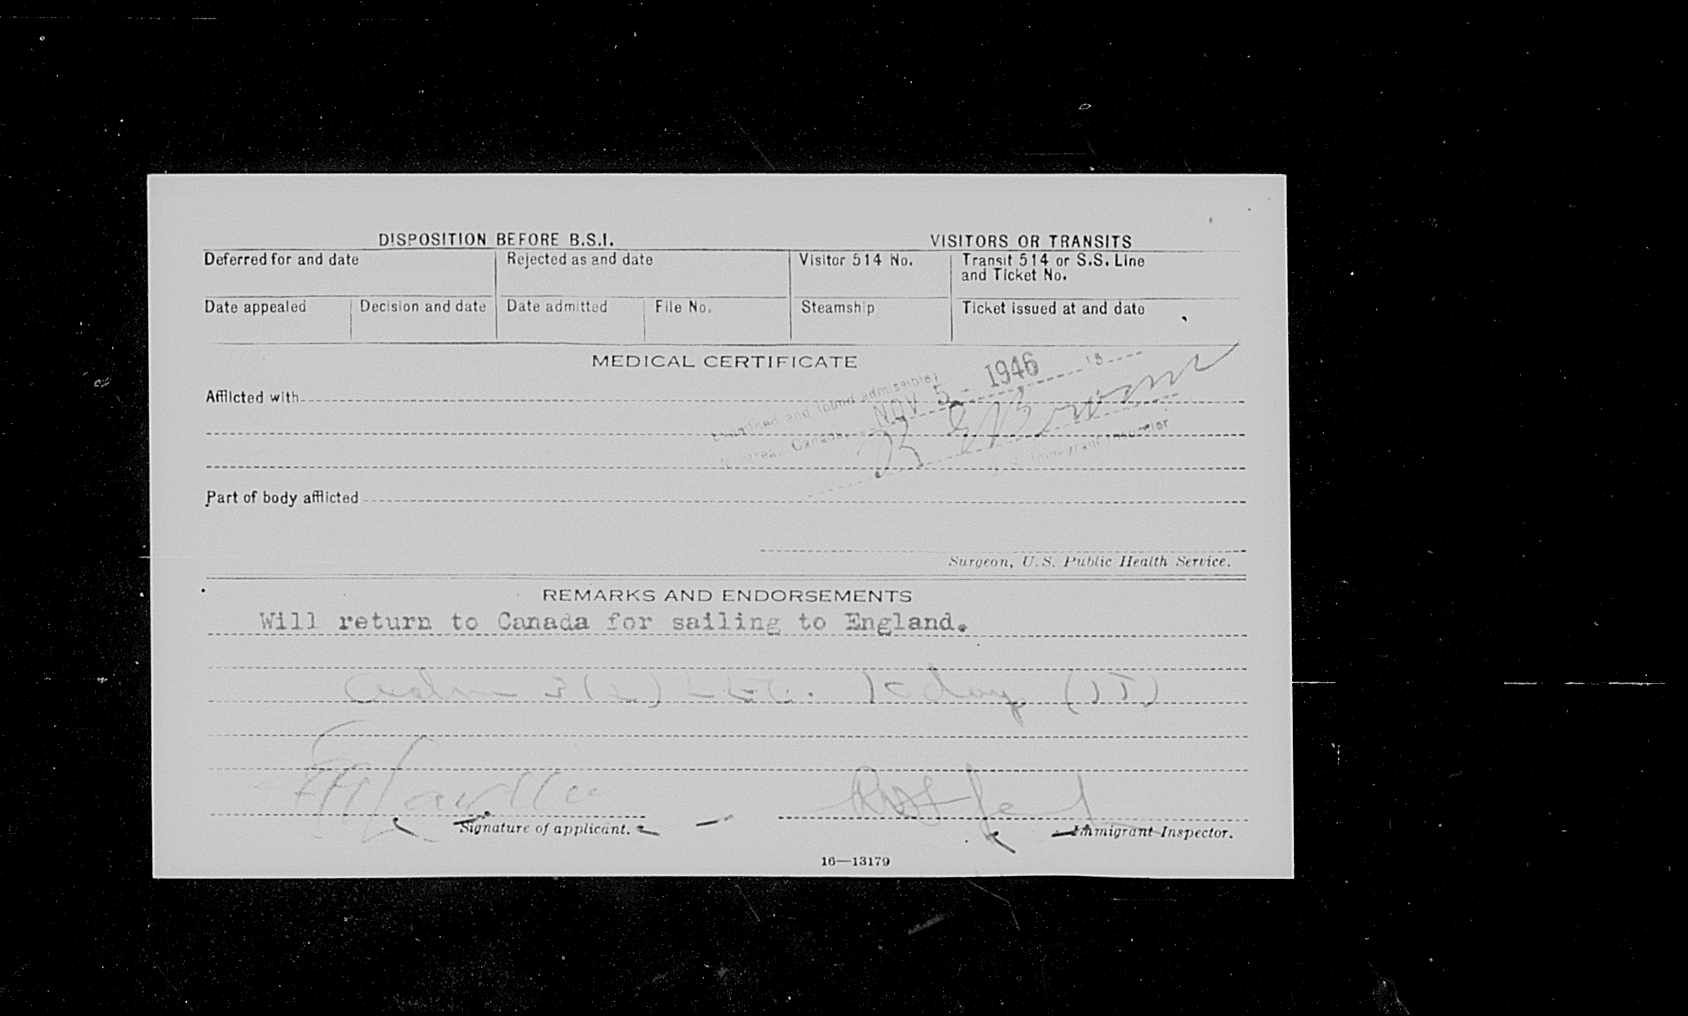 DISPOSITION BEFORE B.S.I.
VISITORS OR TRANSITS
Deferred for and date
Rejected as and date
Visitor 514 No.
Transit 514 or S.S. Line
and Ticket No.
Date appealed
Decision and date
Date admitted
File No.
Steamship
Ticket issued at and date
MEDICAL CERTIFICATE
and found admissible
NOV 5 - 1946
19
Canada
Afflicted with
Part of body afflicted
Surgeon, U.S. Public Health Service.
REMARKS AND ENDORSEMENTS
Will return to Canada for sailing to England.
Adm 3(2)
Signature of applicant.
Immigrant Inspector.
16—13179